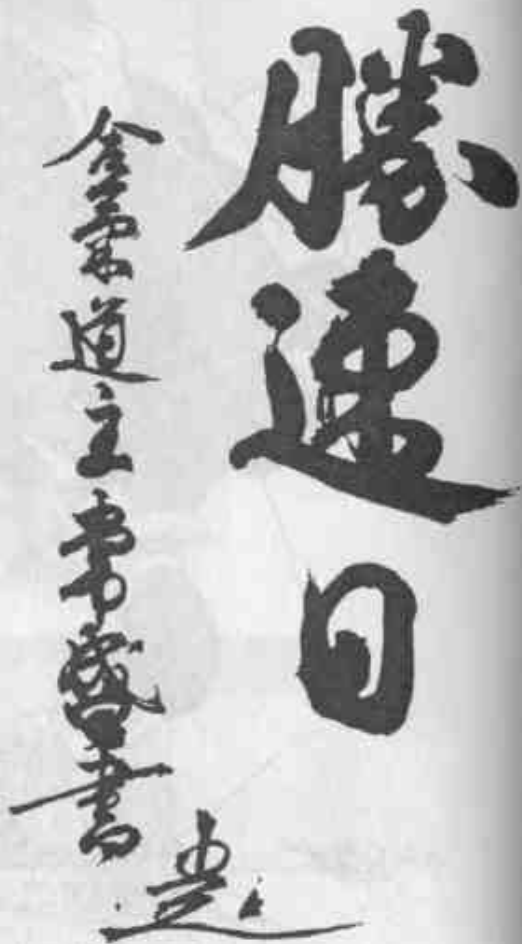 勝速日
合氣道主常盛書